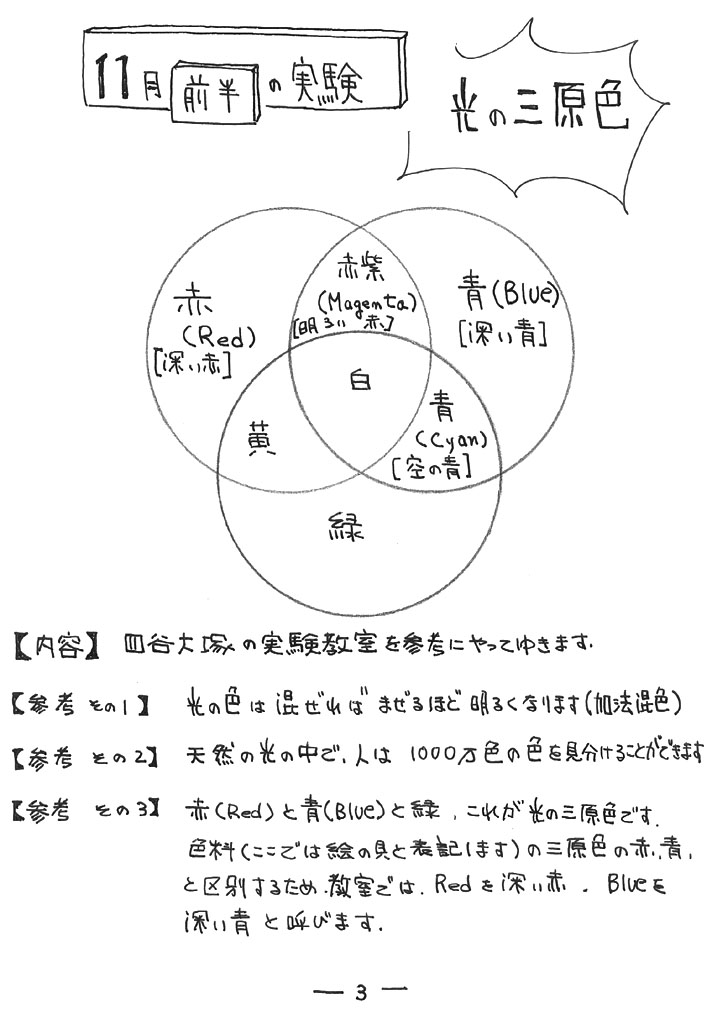 11月前半の実験
光の三原色
赤
(Red)
[深い赤]
赤紫
(Magenta)
[明るい赤]
青(Blue)
[深い青]
白
黄
青
(Cyan)
[空の青]
緑
【内容】 四谷大塚の実験教室を参考にやってゆきます.
【参考 その1】 光の色は混ぜればまぜるほど明るくなります(加法混色)
【参考 その2】 天然の光の中で、人は 1000万色の色を見分けることができます
【参考 その3】 赤(Red)と青(Blue)と緑、これが光の三原色です.
色料(ここでは絵の具と表記します)の三原色の赤、青、
と区別するため、教室では、Redを深い赤 、Blueを
深い青と呼びます.
— 3 —